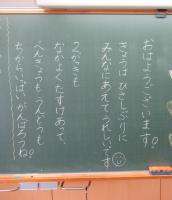 おはようございます!
きょうは ひさしぶりに
みんなにあえて うれしいです
2がっきも
なかよくたすけあって、
べんきょうも うんどうも
ちからいっぱい がんばろうね!